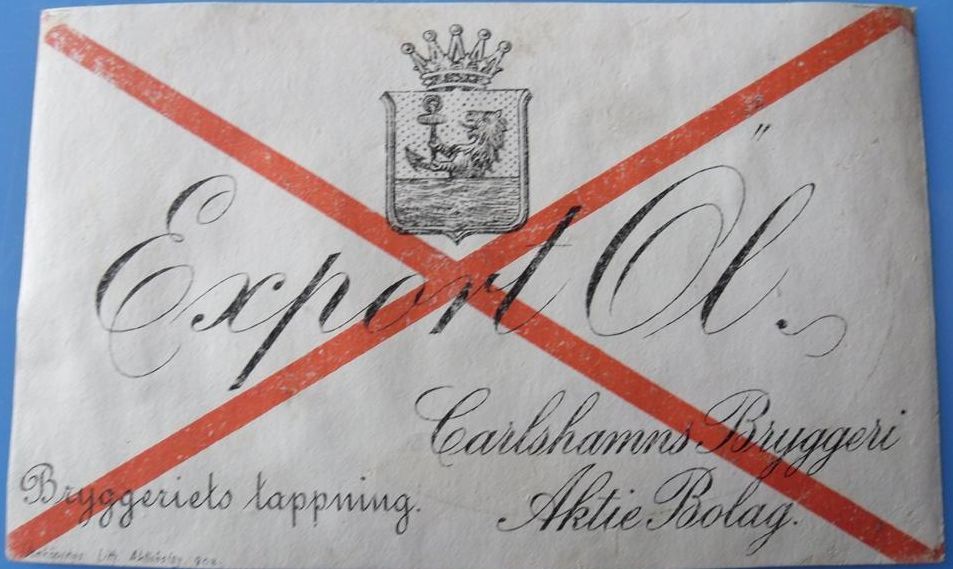 Export Öl.
Carlshamns Bryggeri
Aktie Bolag.
Bryggeriets tappning.
Lith. Aktiebolag